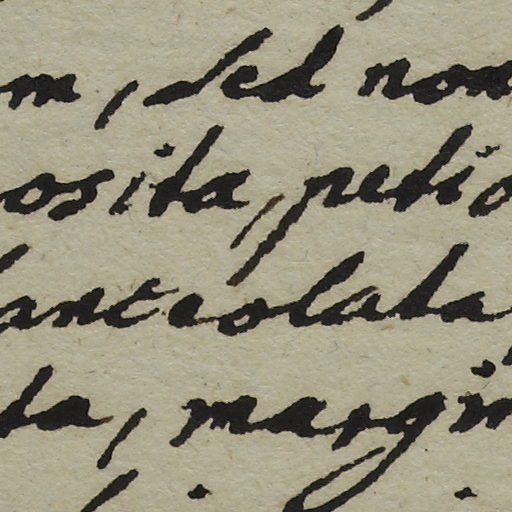 m, sed non
osita, petio
lanceolata,
ta, margin